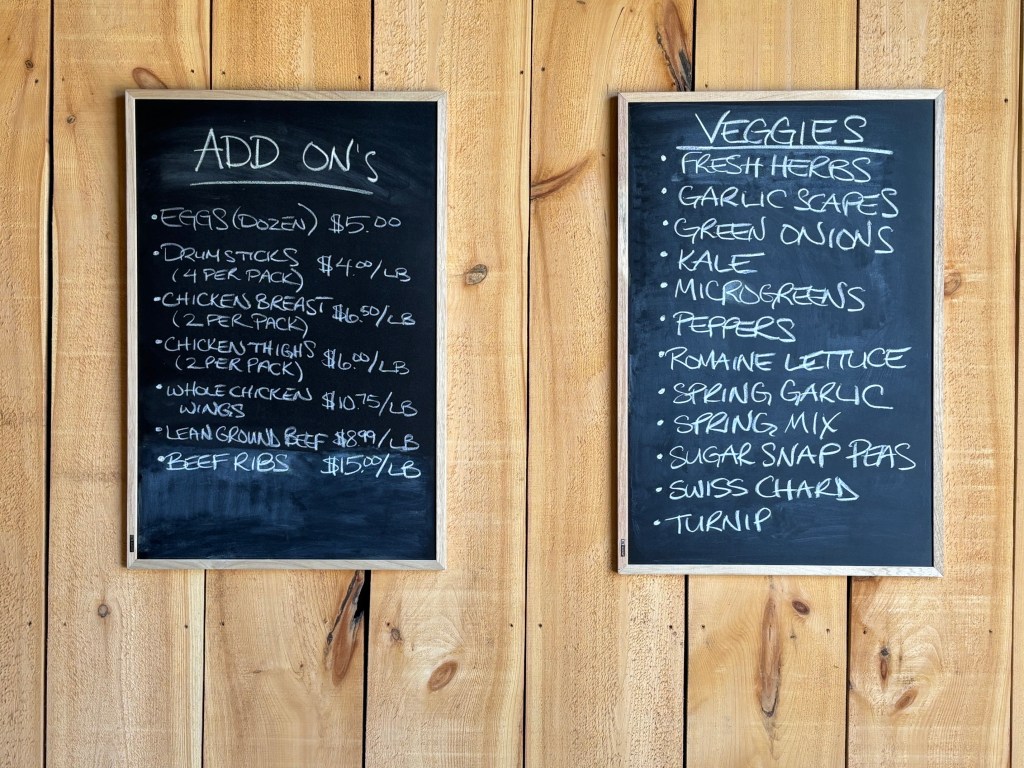 ADD ON'S
• EGGS (DOZEN) $5.00
• DRUMSTICKS
(4 PER PACK) $4.00/LB
• CHICKEN BREAST
(2 PER PACK) $6.50/LB
• CHICKEN THIGHS
(2 PER PACK) $6.00/LB
• WHOLE CHICKEN
WINGS $10.75/LB
• LEAN GROUND BEEF $8.99/LB
• BEEF RIBS $15.00/LB
VEGGIES
• FRESH HERBS
• GARLIC SCAPES
• GREEN ONIONS
• KALE
• MICROGREENS
• PEPPERS
• ROMAINE LETTUCE
• SPRING GARLIC
• SPRING MIX
• SUGAR SNAP PEAS
• SWISS CHARD
• TURNIP